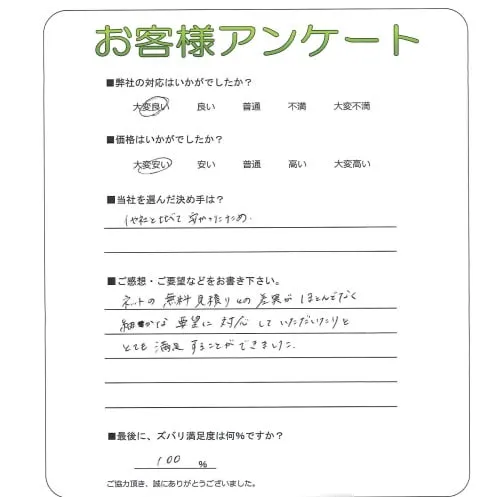 お客様アンケート
■弊社の対応はいかがでしたか？
大変良い 良い 普通 不満 大変不満
■価格はいかがでしたか？
大変安い 安い 普通 高い 大変高い
■当社を選んだ決め手は？
他社と比べて安かったため。
■ご感想・ご要望などをお書き下さい。
ネットの無料見積りの差異がほとんどなく
細かな要望に対応していただいたりと
とても満足することができました。
■最後に、ズバリ満足度は何%ですか？
100 %
ご協力頂き、誠にありがとうございました。